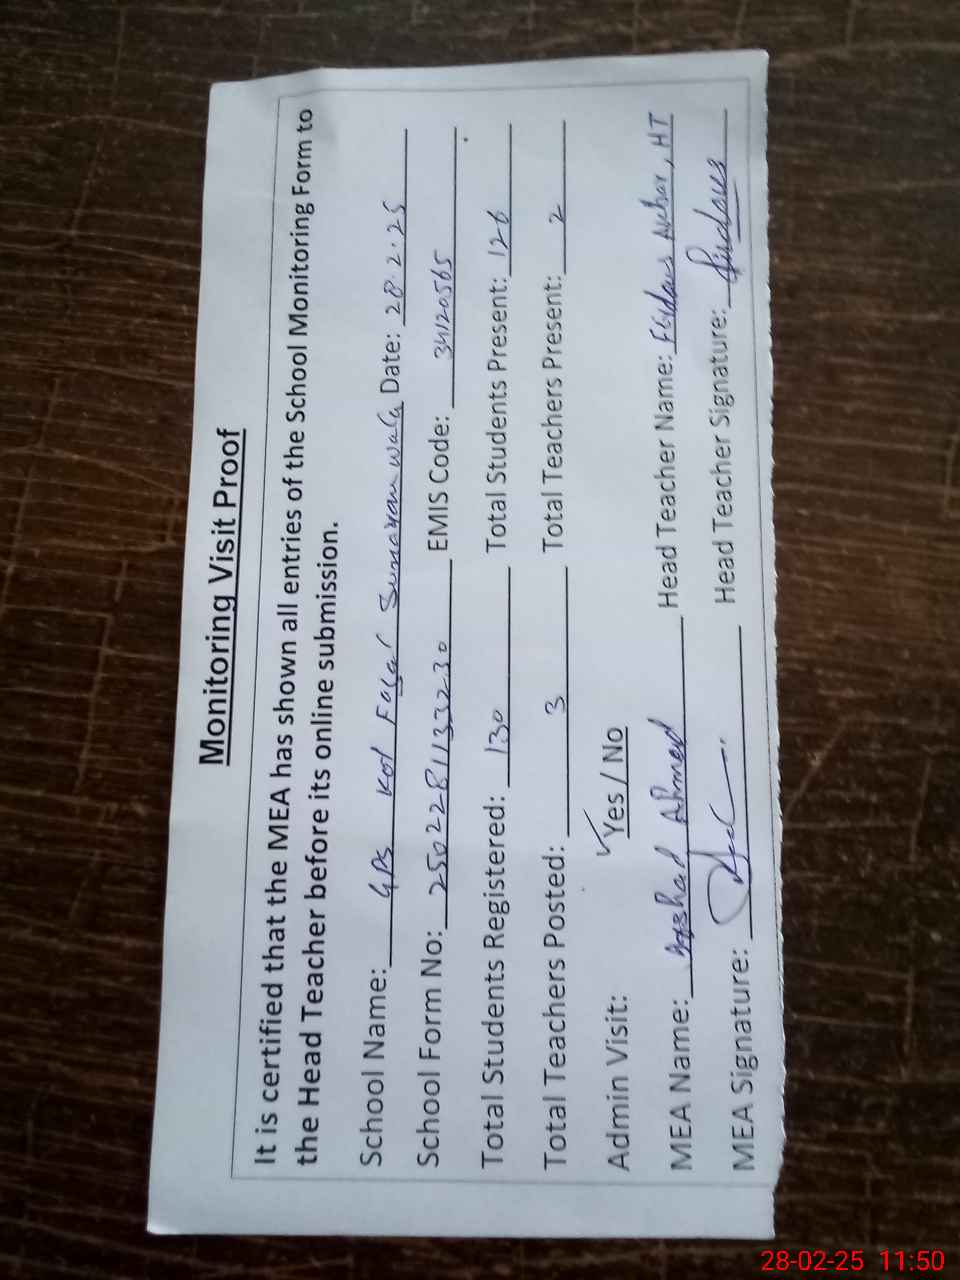 Monitoring Visit Proof
It is certified that the MEA has shown all entries of the School Monitoring Form to
the Head Teacher before its online submission.
School Name: GPS Kot Fazal Date: 28.2.25
School Form No: EMIS Code: 34120565
Total Students Registered: 130 Total Students Present: 126
Total Teachers Posted: 3 Total Teachers Present: 2
Admin Visit: ✓Yes / No
MEA Name: Arshad Ahmed Head Teacher Name: Akhar, HT
MEA Signature: Head Teacher Signature: Firdous
28-02-25 11:50